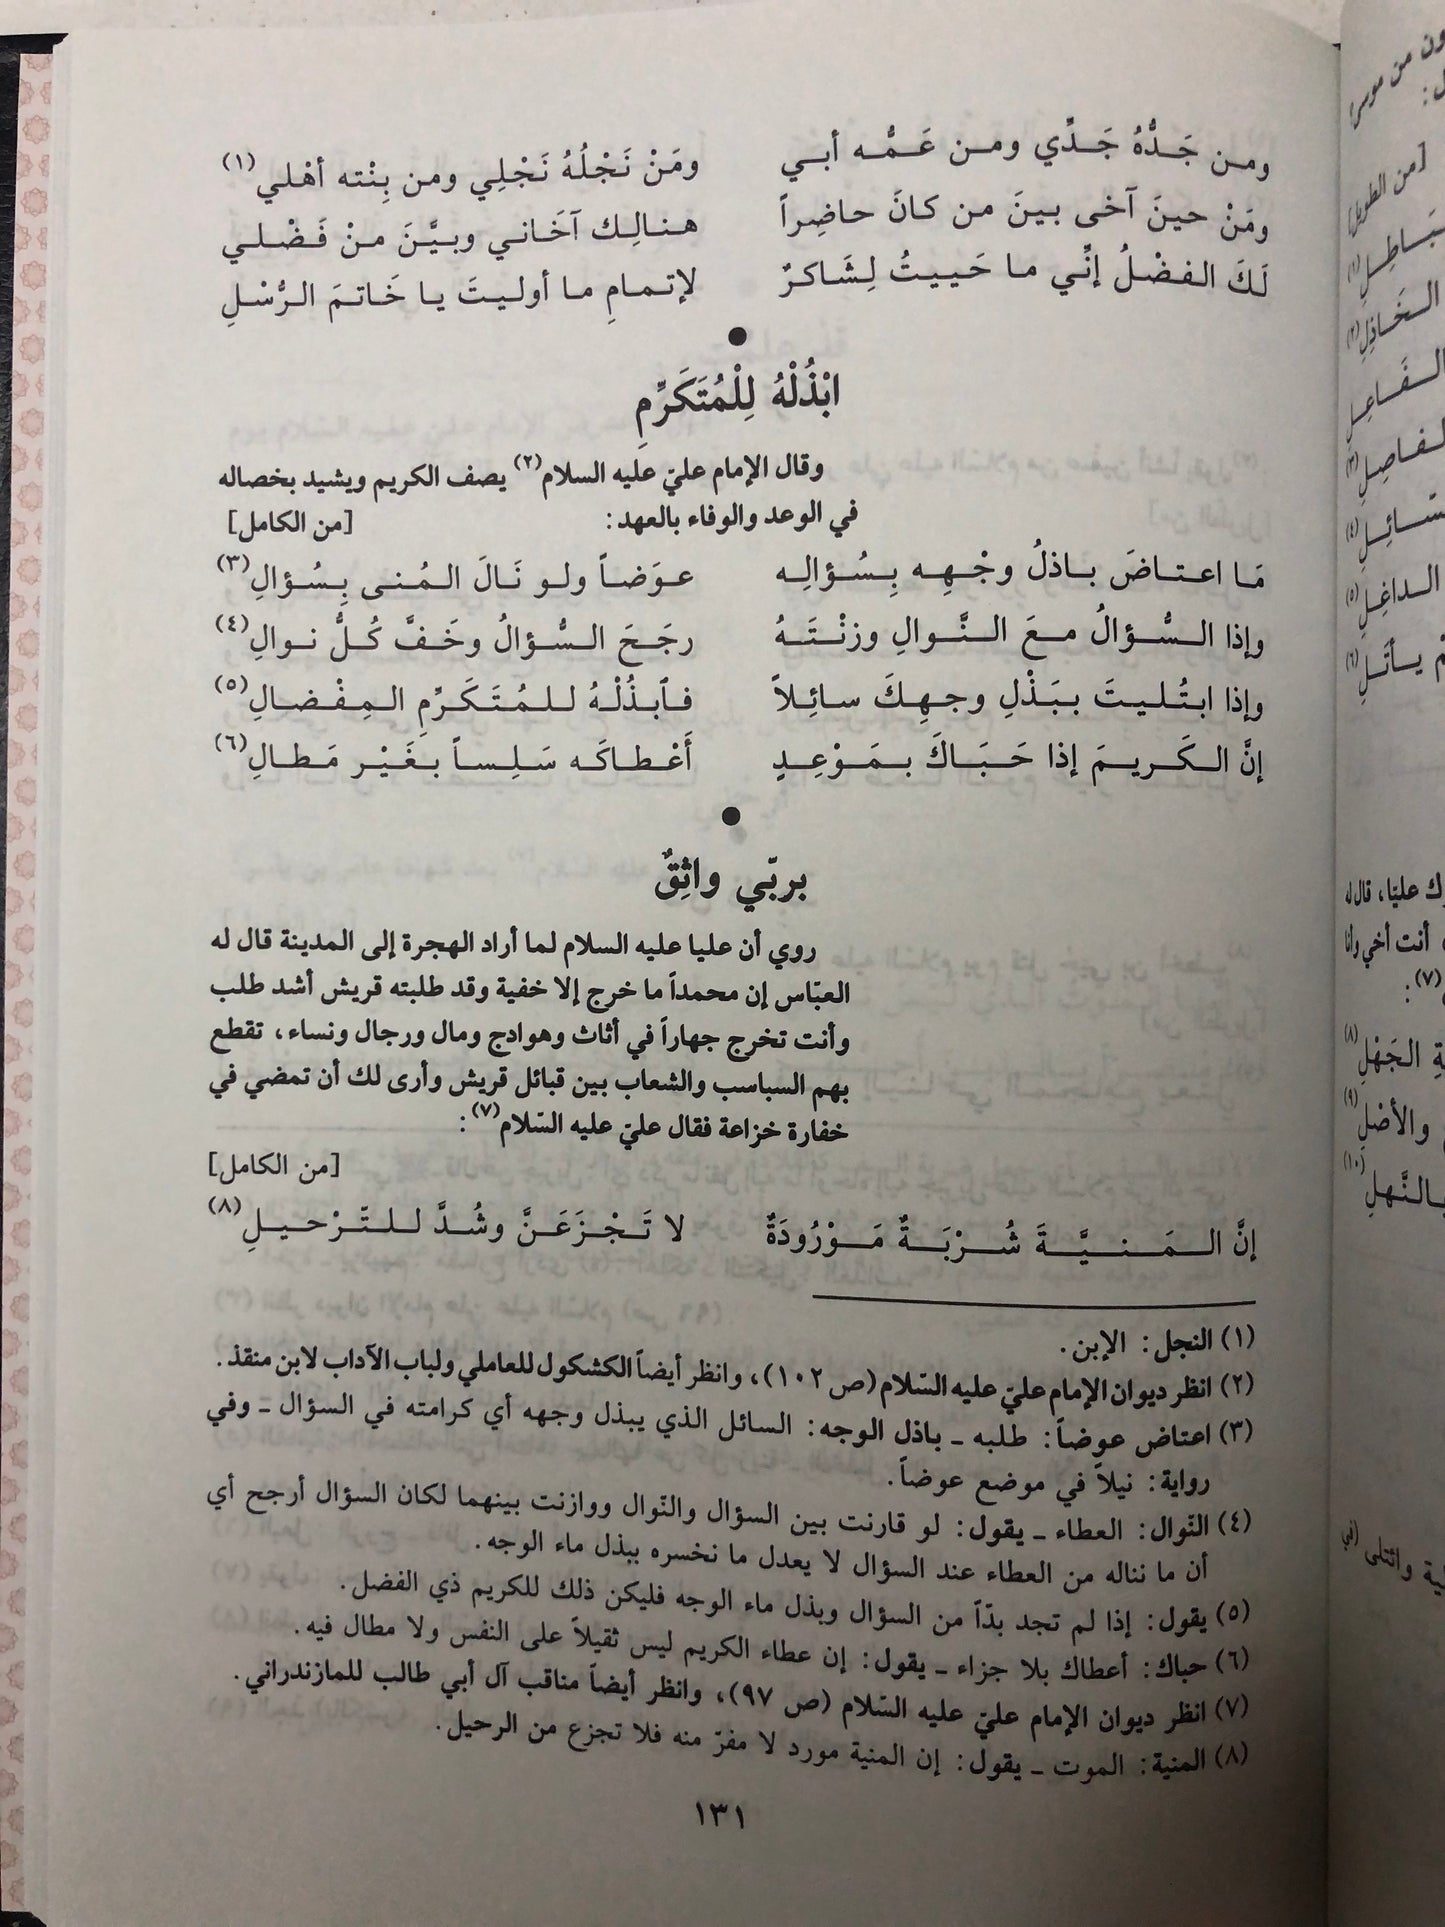 ومن جَدُّهُ جَدِّي ومن عَمُّه أبي ومَنْ نَجْلُهُ نَجْلِي ومن بِنْته أهْلي(١)
ومَنْ حينَ آخى بينَ من كانَ حاضِراً هنالِك آخَاني وبيَّنَ منْ فَضْلي
لَكَ الفضْلُ إنِّي ما حَييتُ لِشَاكرٌ لإتمامِ ما أوليتَ يا خَاتمَ الرُّسْلِ
ابْذُلْهُ لِلْمُتَكَرِّمِ
وقال الإمام عليّ عليه السلام(٢) يصف الكريم ويشيد بخصاله
في الوعد والوفاء بالعهد: [من الكامل]
مَا اعتاضَ باذلُ وجْهِه بِسُؤالِه عوَضاً ولو نَالَ المُنى بِسُؤالِ(٣)
وإذا السُّؤالُ معَ النَّوالِ وزنْتَهُ رجَحَ السُّؤالُ وخَفَّ كُلُّ نوالِ(٤)
وإذا ابتُليتَ ببَذْلِ وجهِكَ سائِلاً فاَبذُلْهُ للمُتَكَرِّمِ المِفْضالِ(٥)
إنَّ الكَريمَ إذا حَبَاكَ بمَوْعِدٍ أَعْطاكَه سَلِساً بغَيْر مَطالِ(٦)
بربّي واثِقٌ
روي أن عليا عليه السلام لما أراد الهجرة إلى المدينة قال له
العبّاس إن محمداً ما خرج إلا خفية وقد طلبته قريش أشد طلب
وأنت تخرج جهاراً في أثاث وهوادج ومال ورجال ونساء، تقطع
بهم السباسب والشعاب بين قبائل قريش وأرى لك أن تمضي في
خفارة خزاعة فقال عليّ عليه السّلام(٧):
[من الكامل]
إنَّ المَنيَّةَ شُرْبَةٌ مَوْرُودَةٌ لا تَجْزَعَنَّ وشُدَّ للتَّرْحيلِ(٨)
(١) النجل: الإبن.
(٢) انظر ديوان الإمام عليّ عليه السّلام (ص ١٠٢)، وانظر أيضاً الكشكول للعاملي ولباب الآداب لابن منقذ.
(٣) اعتاض عوضاً: طلبه ـ باذل الوجه: السائل الذي يبذل وجهه أي كرامته في السؤال ـ وفي
رواية: نيلاً في موضع عوضاً.
(٤) النّوال: العطاء ـ يقول: لو قارنت بين السؤال والنّوال ووازنت بينهما لكان السؤال أرجح أي
أن ما نناله من العطاء عند السؤال لا يعدل ما نخسره ببذل ماء الوجه.
(٥) يقول: إذا لم تجد بدّاً من السؤال وبذل ماء الوجه فليكن ذلك للكريم ذي الفضل.
(٦) حباك: أعطاك بلا جزاء ـ يقول: إن عطاء الكريم ليس ثقيلاً على النفس ولا مطال فيه.
(٧) انظر ديوان الإمام عليّ عليه السّلام (ص ٩٧)، وانظر أيضاً مناقب آل أبي طالب للمازندراني.
(٨) المنية: الموت ـ يقول: إن المنية مورد لا مفرّ منه فلا تجزع من الرحيل.
١٣١
[من الطويل]
الخَاذِلِ(٢)
الداغِلِ(٥)
ك عليّا، قال له
أنت أخي وأنا
(٧):
الجَهْلِ(٨)
والأصْلِ(٩)
بالنَّهلِ(١٠)